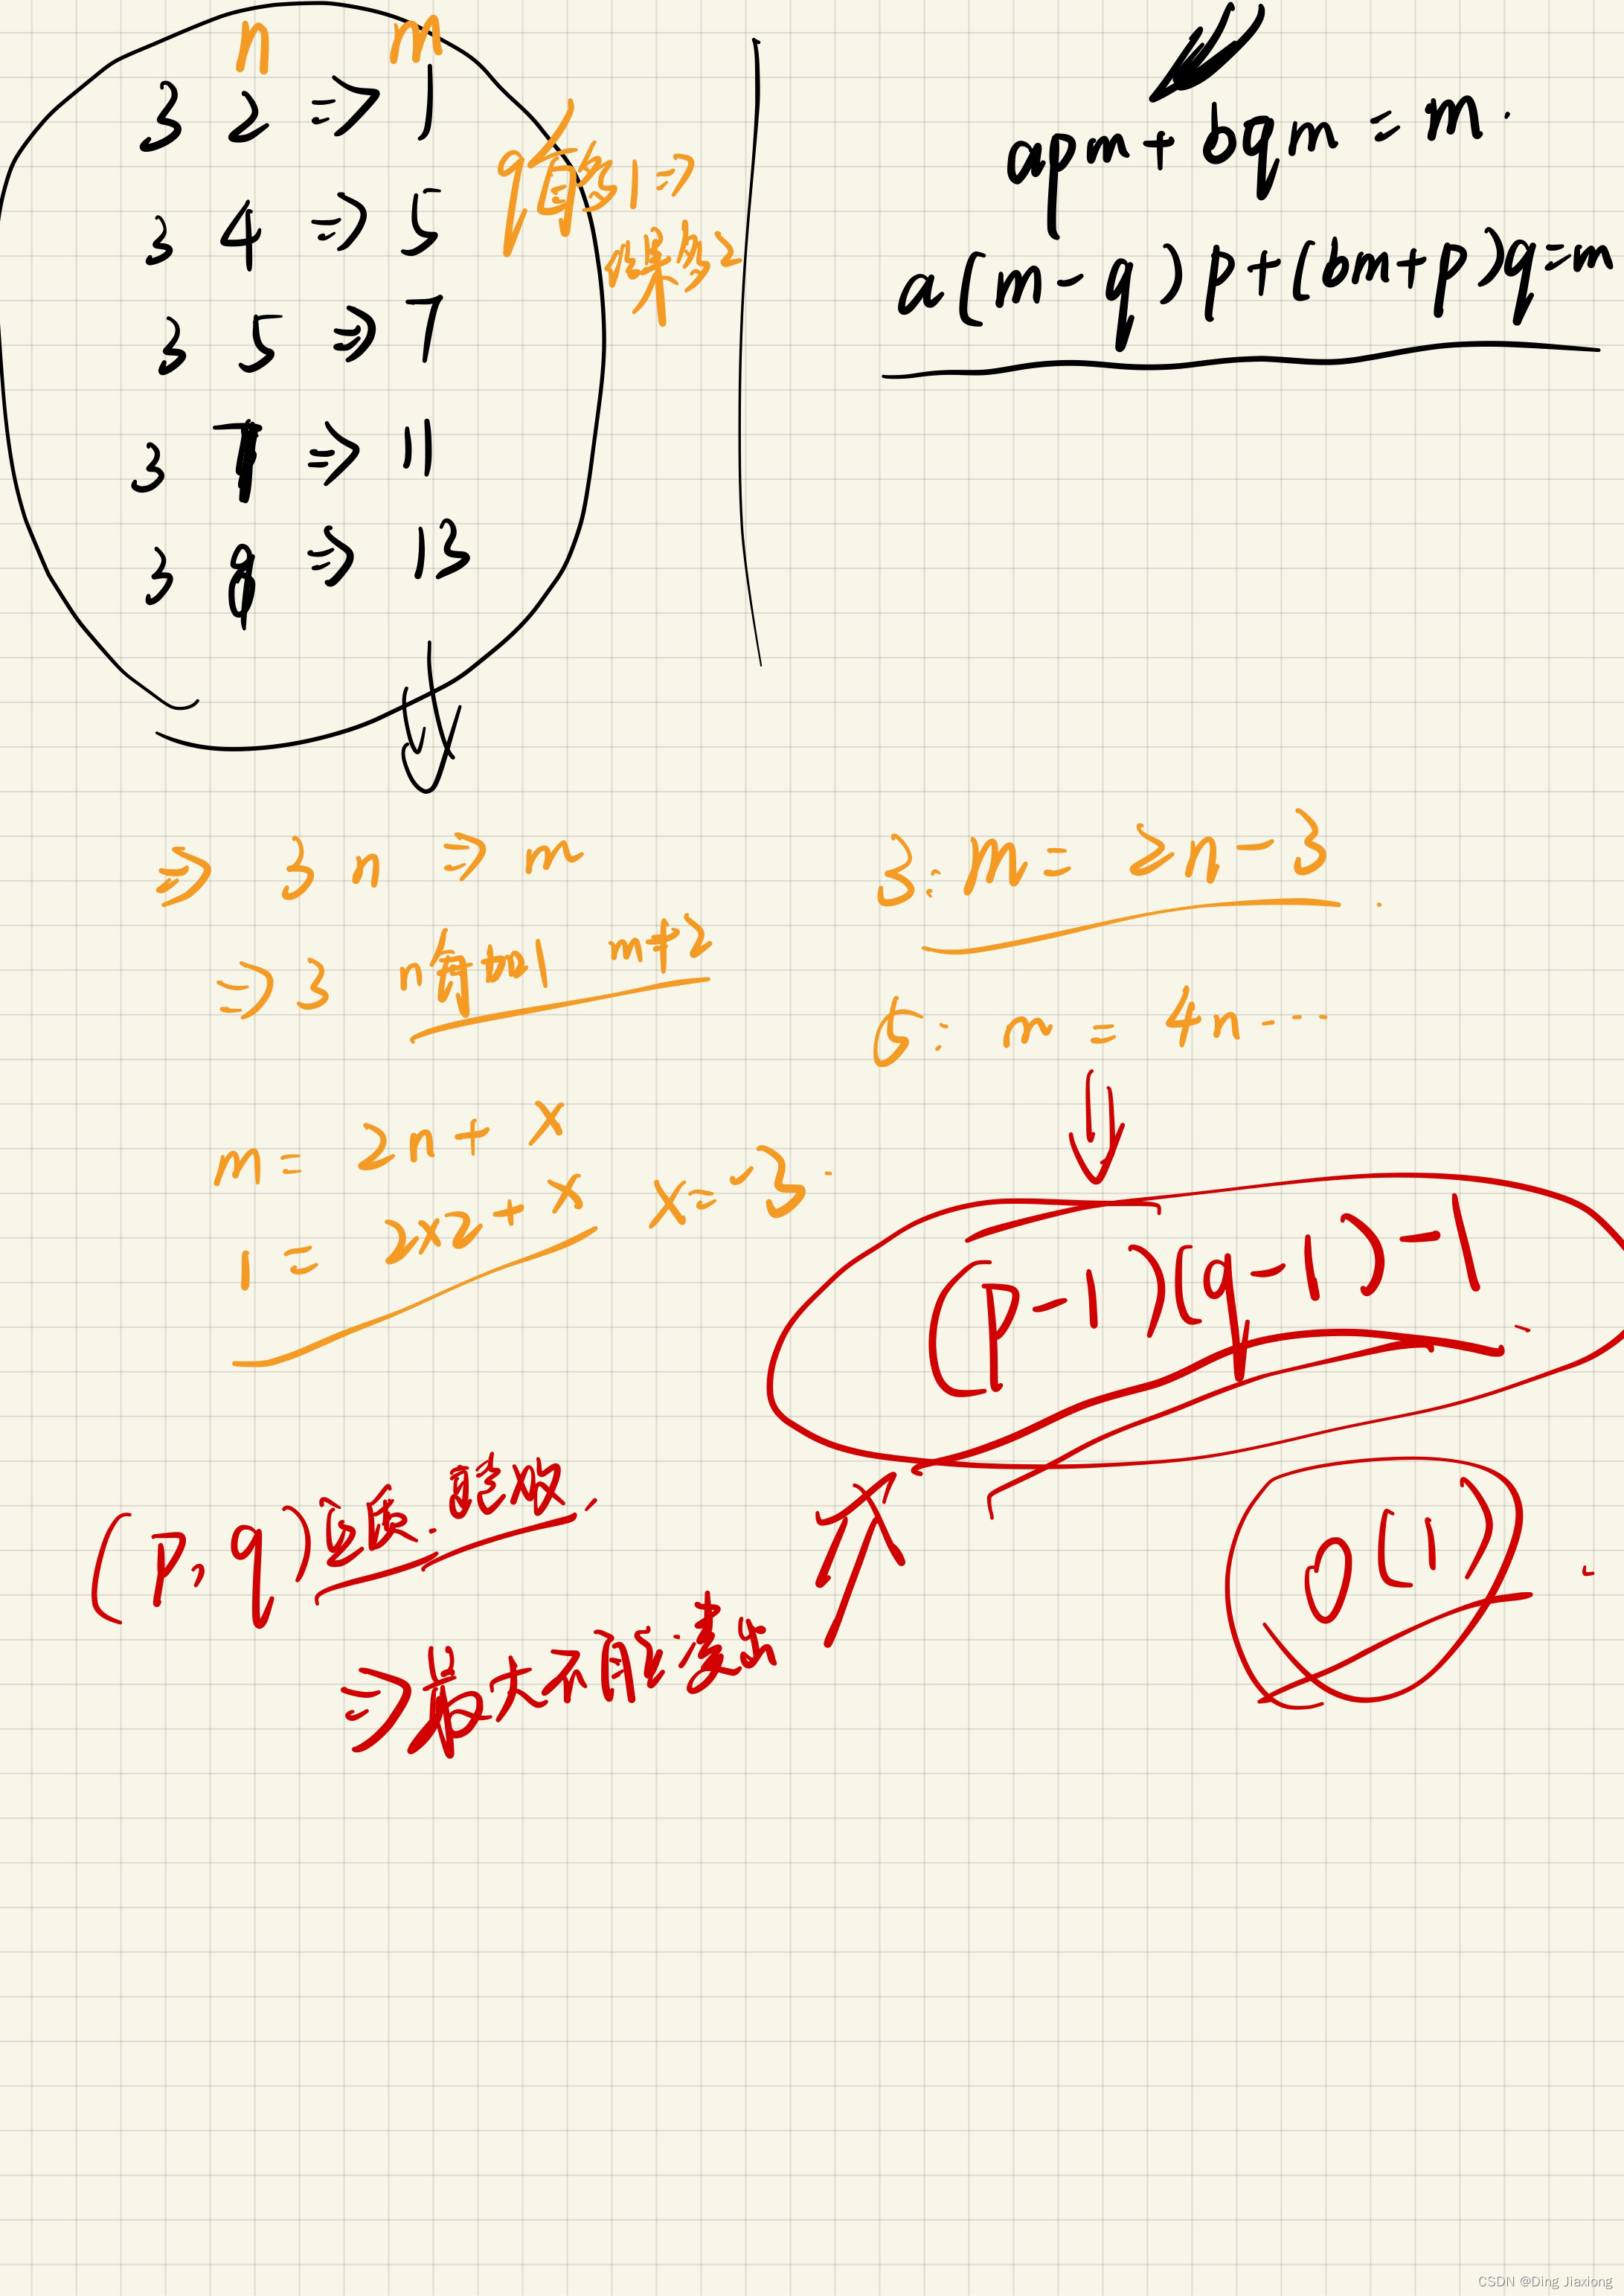 n m
3 2 => 1
3 4 => 5
3 5 => 7
3 7 => 11
3 8 => 13
q每多1 =>
结果多2
apm + bqm = m.
a(m-q)p + (bm+p)q = m
=> 3 n => m
=> 3 n每加1 m+2
m = 2n + x
1 = 2×2 + x x = -3
3: m = 2n - 3
5: m = 4n - - -
(p-1)(q-1)-1
(p, q)
=> 最大不能凑出
O(1)
CSDN @Ding Jiaxiong